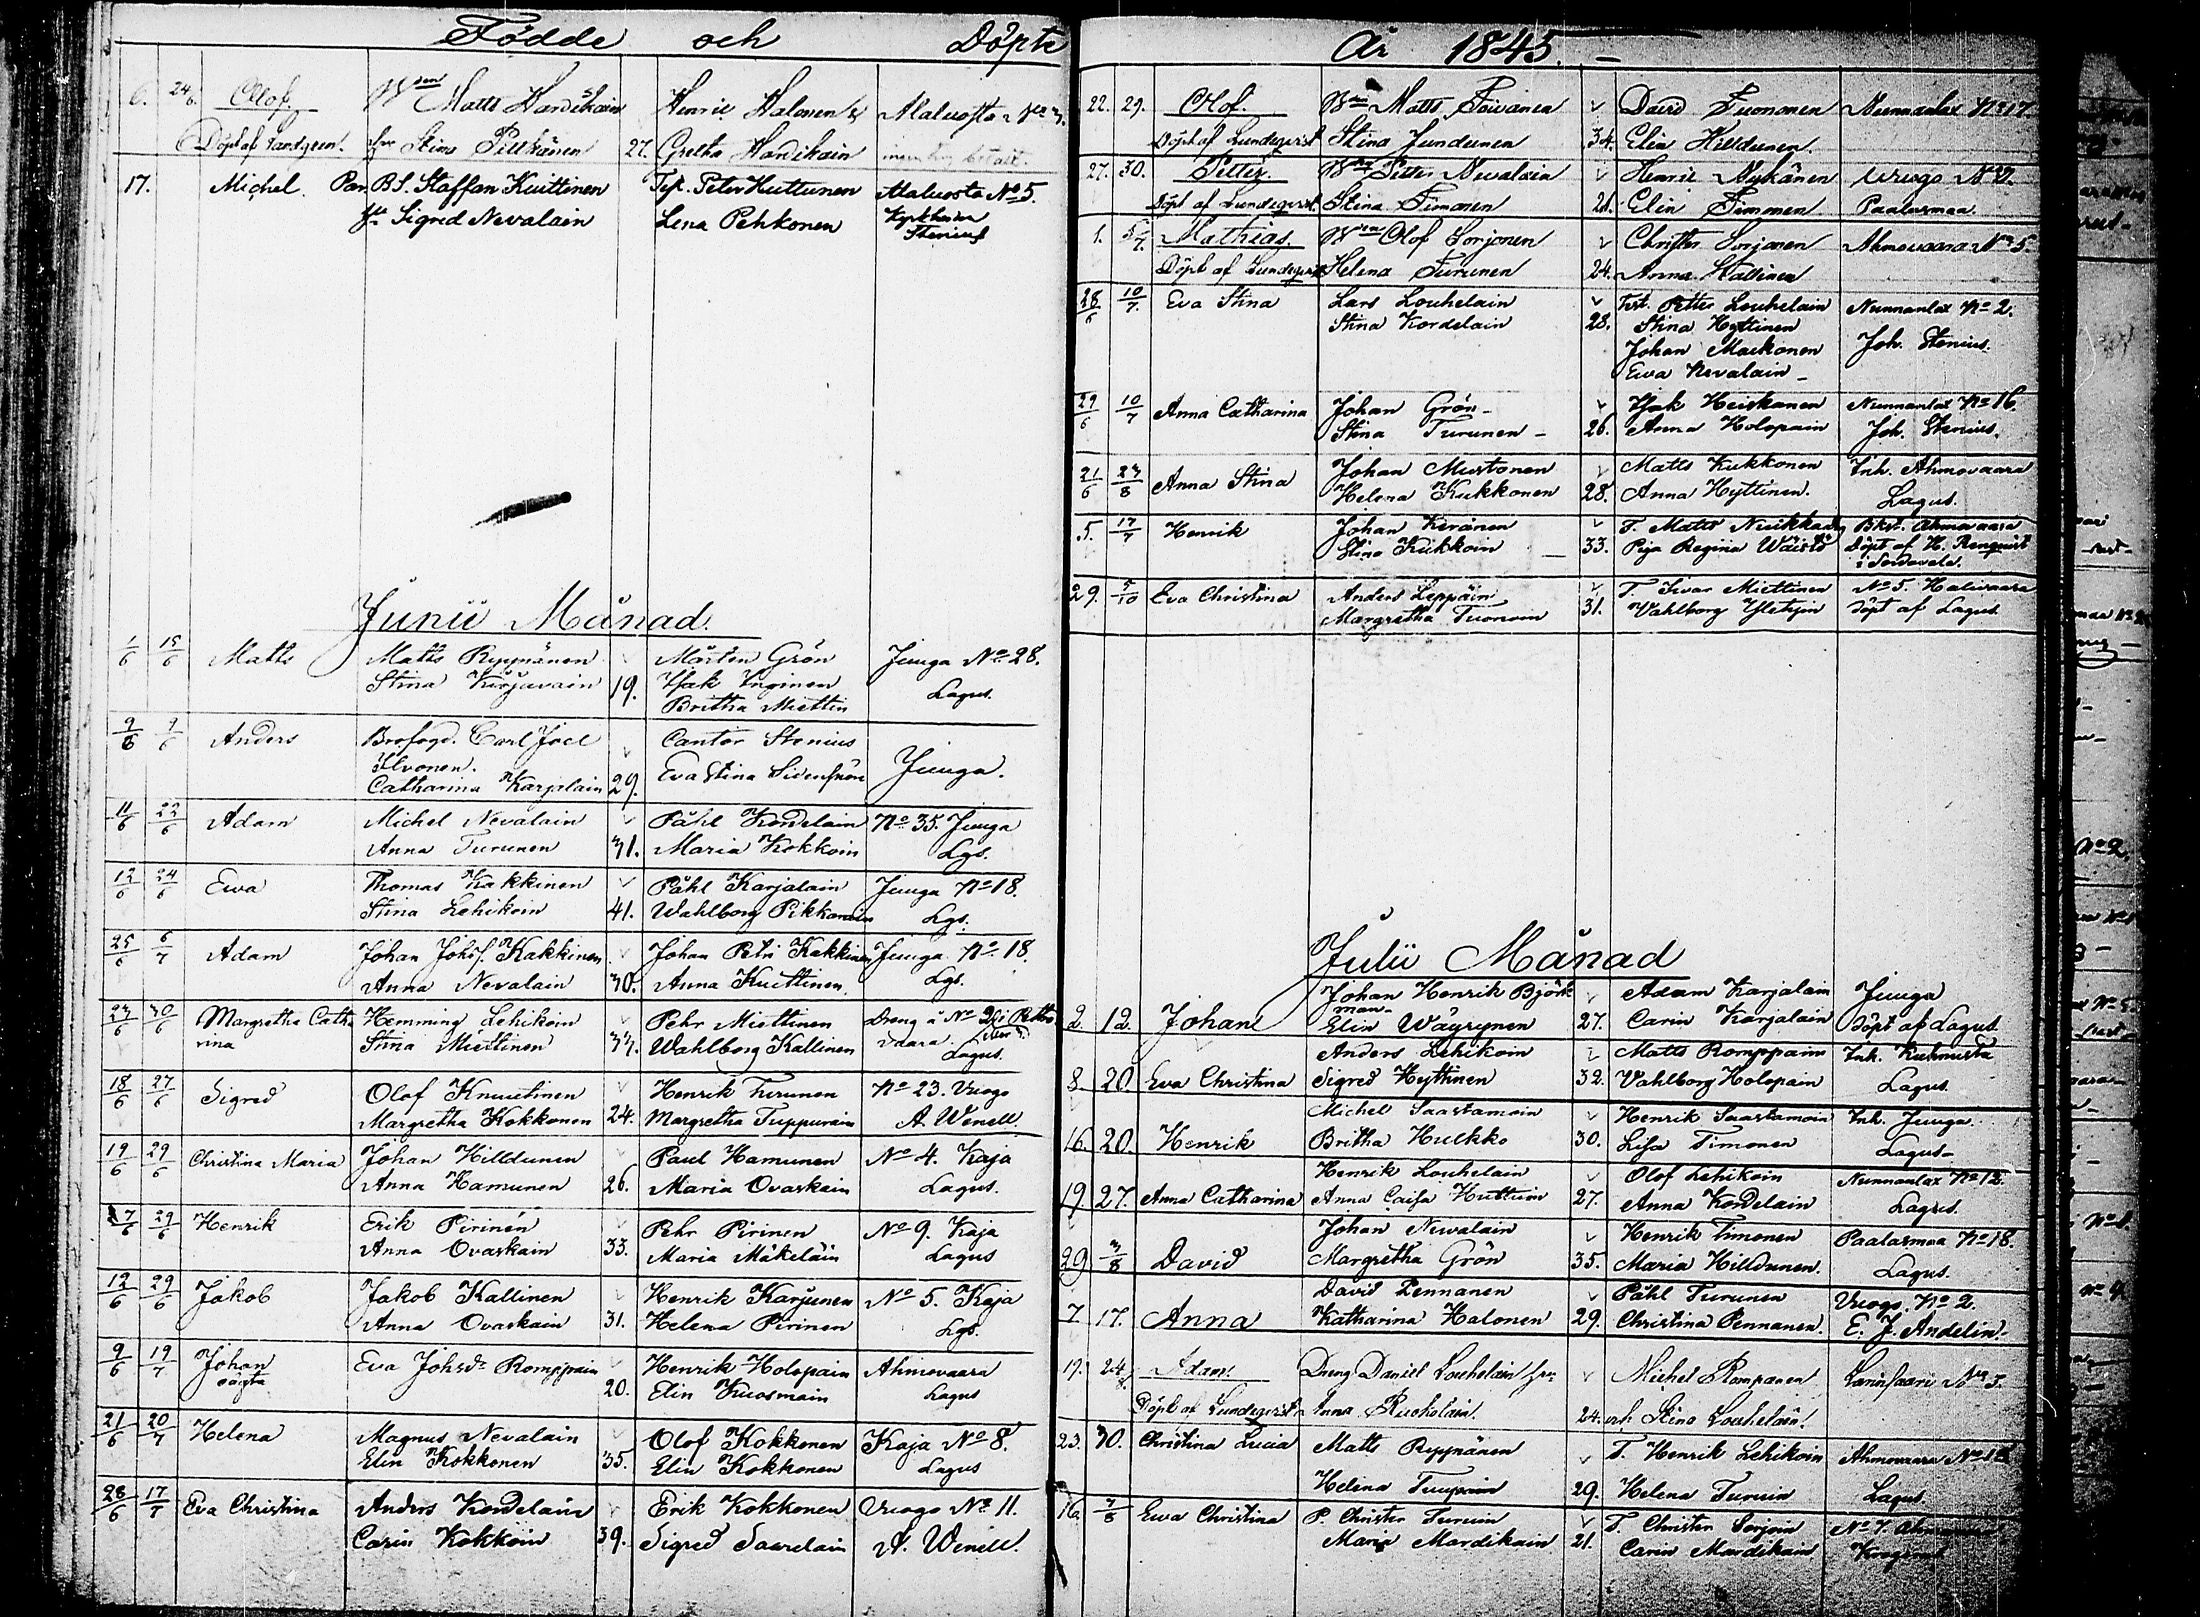 Födde och Döpte
6. 24/6. Olof. Matts Hardikain Henric Halonen Maluosta
Döpt af Stina Pitkänen 27. Gretha Hardikain
17. Michel. B.S. Staffan Kuittinen Peter Huttunen Maluosta No 5.
Sigred Nevalain Lena Pehkonen
Stenius
Junii Månad.
1/6 15/6 Matts Matts Ryynänen Mårten Grön Juuga No 28.
Stina Kirjavain 19. Isak Inginen Lagus.
Britha Miettin
9/6 9/6 Anders Brofogd. Carl Joel Cantor Stenius Juuga.
Ilvonen. Eva Stina
Catharina Karjalain 29.
11/6 22/6 Adam Michel Nevalain Påhl Kordelain No 35. Juuga
Anna Turunen 31. Maria Kokkoin Lgs.
12/6 24/6 Ewa Thomas Kakkinen Påhl Karjalain Juuga No 18.
Stina Lehikoin 41. Wahlborg Pikkarain Lgs.
25/6 6/7 Adam Johan Johsf. Kakkinen Johan Petri Kakkinen Juuga No 18.
Anna Nevalain 30. Anna Kuittinen. Lgs.
23/6 30/6 Margretha Catha Hemming Lehikoin Pehr Miettinen Dreng å No
rina Stina Miettinen 33. Wahlborg Kallinen vaara Lagus.
18/6 27/6 Sigred Olof Knuutinen Henrik Turunen No 23. Vuogo
Margretha Kokkonen 24. Margretha Tuppurain A. Wenell.
19/6 29/6 Christina Maria Johan Hilldunen Paul Hamunen No 4. Kaja
Anna Hamunen 26. Maria Ovaskain Lagus.
27/6 29/6 Henrik Erik Pirinen Pehr Pirinen No 9. Kaja
Anna Ovaskain 33. Maria Mäkeläin Lagus
12/6 29/6 Jakob Jakob Kallinen Henrik Karjunen No 5. Kaja
Anna Ovaskain 31. Helena Pirinen Lgs.
9/6 19/7 Johan Eva Johsdr Romppain Henrik Holopain Ahmovaara
oägta 20. Elin Kuosmain Lagus
21/6 20/7 Helena Magnus Nevalain Olof Kokkonen Kaja No 8.
Elin Kokkonen 35. Elin Kokkonen Lagus
28/6 17/7 Eva Christina Anders Kordelain Erik Kokkonen Vuogo No 11.
Carin Kokkoin 39. Sigred Saarelain A. Wenell.
År 1845.
22. 29. Olof. Matts Toivanen David Tuononen Nunnanlax No 17
Döpt af Lundeqvist Stina Jundunen 34. Elin Hilldunen.
27. 30. Petter. Petter Nevalain Henric Mykänen
Döpt af Lundeqvist Stina Timonen 21. Elin Timonen Paalasmaa.
1. 5/7. Mathias. Olof Sorjonen Christer Sorjonen Ahmovaara No 5
Döpt af Lundeqvist Helena Turunen 24. Anna Kallinen
28/6 10/7. Eva Stina Lars Louhelain Petter Louhelain Nunnanlax No 2.
Stina Kordelain 28. Stina Hyttinen
Johan Maikonen Joh. Stenius.
Ewa Nevalain
29/6 10/7 Anna Catharina Johan Grön Isak Heiskanen Nunnanlax No 16.
Stina Turunen 26. Anna Holopain Joh. Stenius.
21/6 23/8 Anna Stina Johan Mustonen Matts Kukkonen Inh. Ahmovaara
Helena Kukkonen 28. Anna Hyttinen. Lagus.
5. 17/7 Henrik Johan Keränen T. Matts Bkst. Ahmovaara
Stina Kukkoin 33. Regina Döpt af H. Renqvist
i Sordavala.
29. 5/10 Eva Christina Anders Leppäin T. Ivar Miettinen No 5. Halivaara
Margretha Tuonoin 31. Wahlborg Döpt af Lagus
Julii Månad
Johan Henrik Björk Adam Karjalain Juuga
man
2 12. Johan Elin Wäyrynen 27. Carin Karjalain Döpt af Lagus.
Anders Lehikoin Matts Romppain Inh. Kuhnusta
8. 20. Eva Christina Sigred Hyttinen 32. Vahlborg Holopain Lagus.
Michel Saastamoin Henrik Saastamoin Inh. Juuga.
16. 20. Henrik Britha Hulkko 30. Lisa Timonen Lagus
Henrik Louhelain Olof Lehikoin Nunnanlax No 12.
19. 27. Anna Catharina Anna Caisa Huttuin 27. Anna Kordelain Lagus.
Johan Nevalain Henrik Timonen Paalasmaa No 18.
29 3/8 David Margretha Grön 35. Maria Hilldunen. Lagus.
David Pennanen Påhl Turunen Vuogo. No 2.
7 17. Anna Katharina Halonen 29. Christina Pennanen. E. J. Andelin
19. 24/8. Adam. Dreng Daniel Louhelain Michel Romponen Larinsaari No 3.
Döpt af Lundeqvist Anna 24. och Stina Louhelain.
23. 30. Christina Lucia Matts Ryynänen T. Henrik Lehikoin Ahmovaara No 18
Helena 29. Helena Turuin Lagus.
16. 3/8 Ewa Christina P. Christer Turuin T. Christer Sorjoin No 7.
Maria Mardikain 21. Carin Mardikain